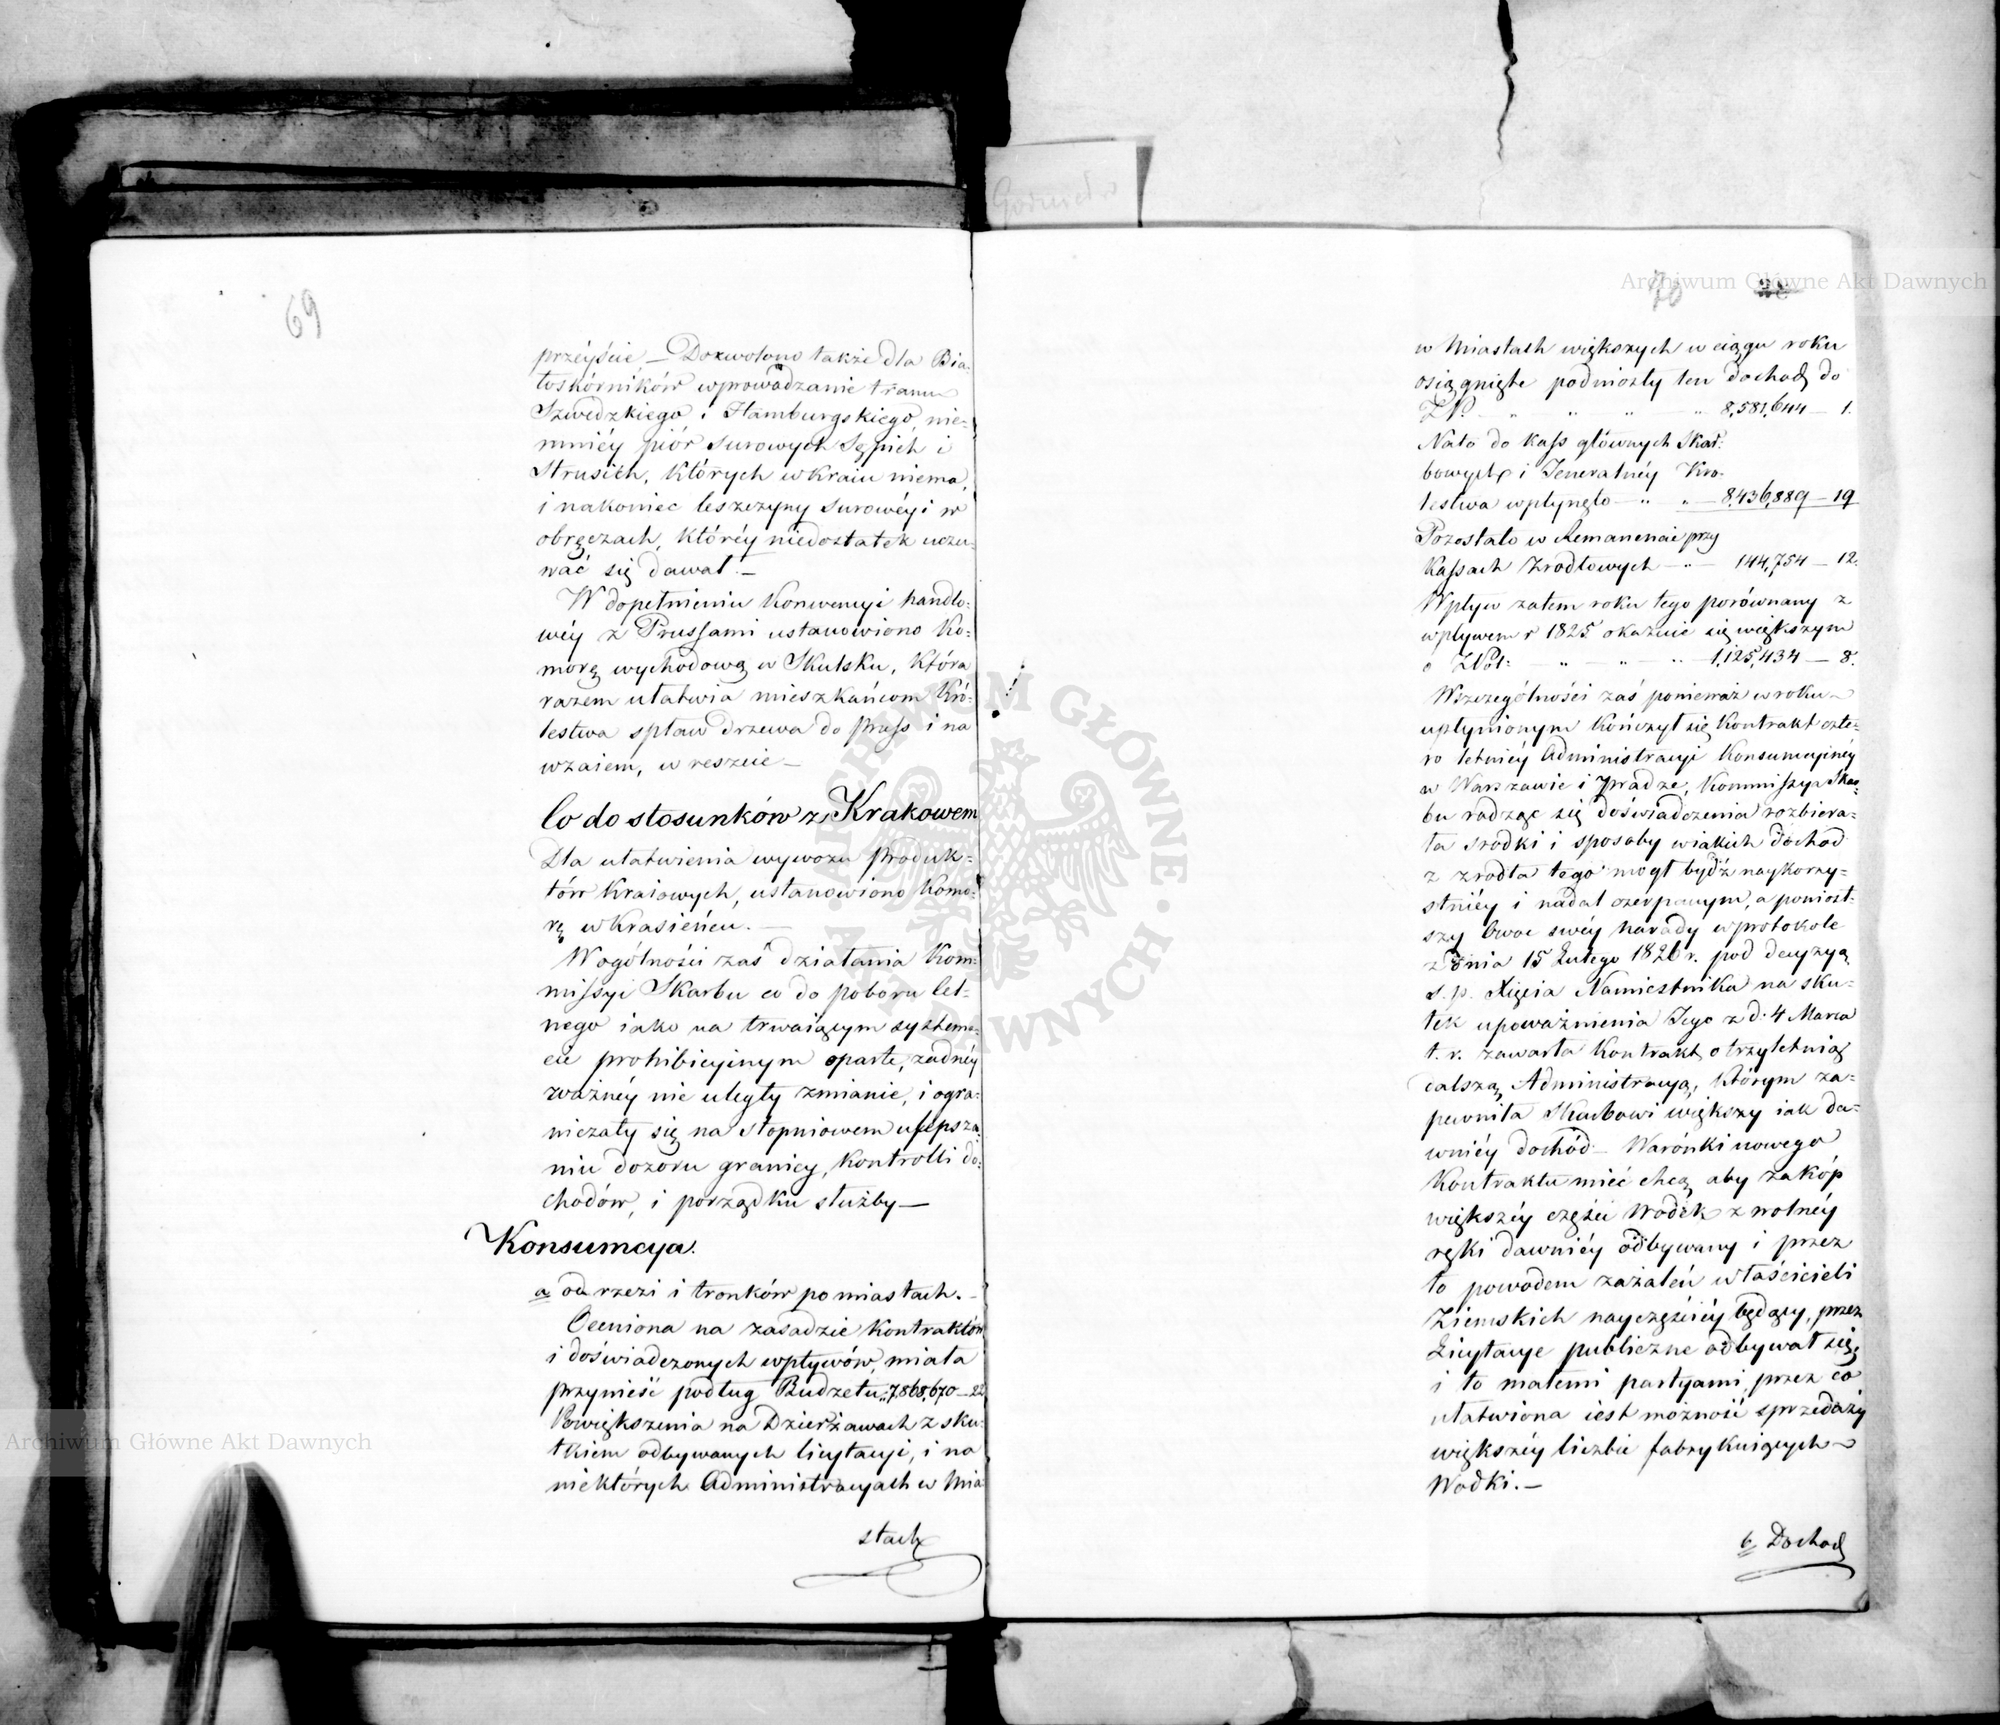 69
przeyście — Dozwolono także dla Bia-
łoskórników wprowadzanie tranu
Szwedzkiego i Hamburgskiego, nie-
mniéy piór surowych Sępich i
Strusich, których w kraiu niema,
i nakoniec leszczyny surowéy i w
obręczach, któréy niedostatek uczu-
wać się dawał. —
W dopełnieniu Konwencyi handlo-
wéy z Prussami ustanowiono Ko-
morę wychodową w Skulsku, która
razem ułatwia mieszkańcom Kró-
lestwa spław drzewa do Pruss i na
wzaiem, w reszcie —
Co do stosunków z Krakowem
Dla ułatwienia wywozu produk-
tów Kraiowych, ustanowiono Komo-
rę w Krasieńcu. —
W ogólności zaś działania Kom-
missyi Skarbu co do poboru cel-
nego iako na trwaiącym systema-
cie prohibicyinym oparte, żadnéy
ważnéy nie uległy zmianie, i ogra-
niczały się na stopniowem ulepsza-
niu dozoru granicy, Kontrolli do-
chodów, i porządku służby —
Konsumcya.
a od rzezi i trunków po miastach. —
Oceniona na zasadzie Kontraktów
i doświadczonych wpływów, miała
przynieść podług Budżetu „ 7,868,670 — 22
Powiększenia na Dzierżawach z sku-
tkiem odbywanych licytacyi, i na
niektórych Administracyach w Mia-
stach
Archiwum Główne Akt Dawnych
70
w Miastach większych w ciągu roku
osiągnięte podniosły ten dochod do
ZP. „ „ „ „ 8,581,644 — 1.
Nato do kass głównych Skar-
bowych i Jeneralnéy Kro-
lestwa wpłynęło — „ „ — 8,436,889 — 19
Pozostało w Remanencie przy
Kassach Zrodłowych — „ — 144,754 — 12.
Wpływ zatem roku tego porównany z
wpływem r 1825 okazuie się większym
o ZPol: „ — „ „ — 1,125,434 — 8.
W szczególności zaś ponieważ w roku
upłynionym kończył się Kontrakt czte-
ro letniéy Administracyi Konsumcyinéy
w Warszawie i Pradze, Kommissya Skar-
bu radząc się doświadczenia rozbiera-
ła srodki i sposoby w iakich dochod
z zrodła tego mogł bydź naykorzy-
stniéy i nadal czerpanym, a poniosł-
szy owoc swéy narady w protokole
z dnia 15 Lutego 1826 r. pod decyzyą
ś. p. Xięcia Namiestnika na sku-
tek upoważnienia Jego z d. 4 Marca
t. r. zawarła Kontrakt o trzyletnią
dalszą Administracyą, którym za-
pewniła Skarbowi większy iak da-
wniéy dochód — Warónki nowego
Kontraktu mieć chcą aby zakóp
większéy części Wódek z wolnéy
ręki dawniéy odbywany i przez
to powodem zażaleń właścicieli
Ziemskich nayczęściéy będący, przez
Licytacye publiczne odbywał się,
i to małemi partyami, przez co
ułatwiona iest możność sprzedaży
większéy liczbie fabrykuiących
Wodki. —
b Dochod
Archiwum Główne Akt Dawnych
ARCHIWUM GŁÓWNE AKT DAWNYCH